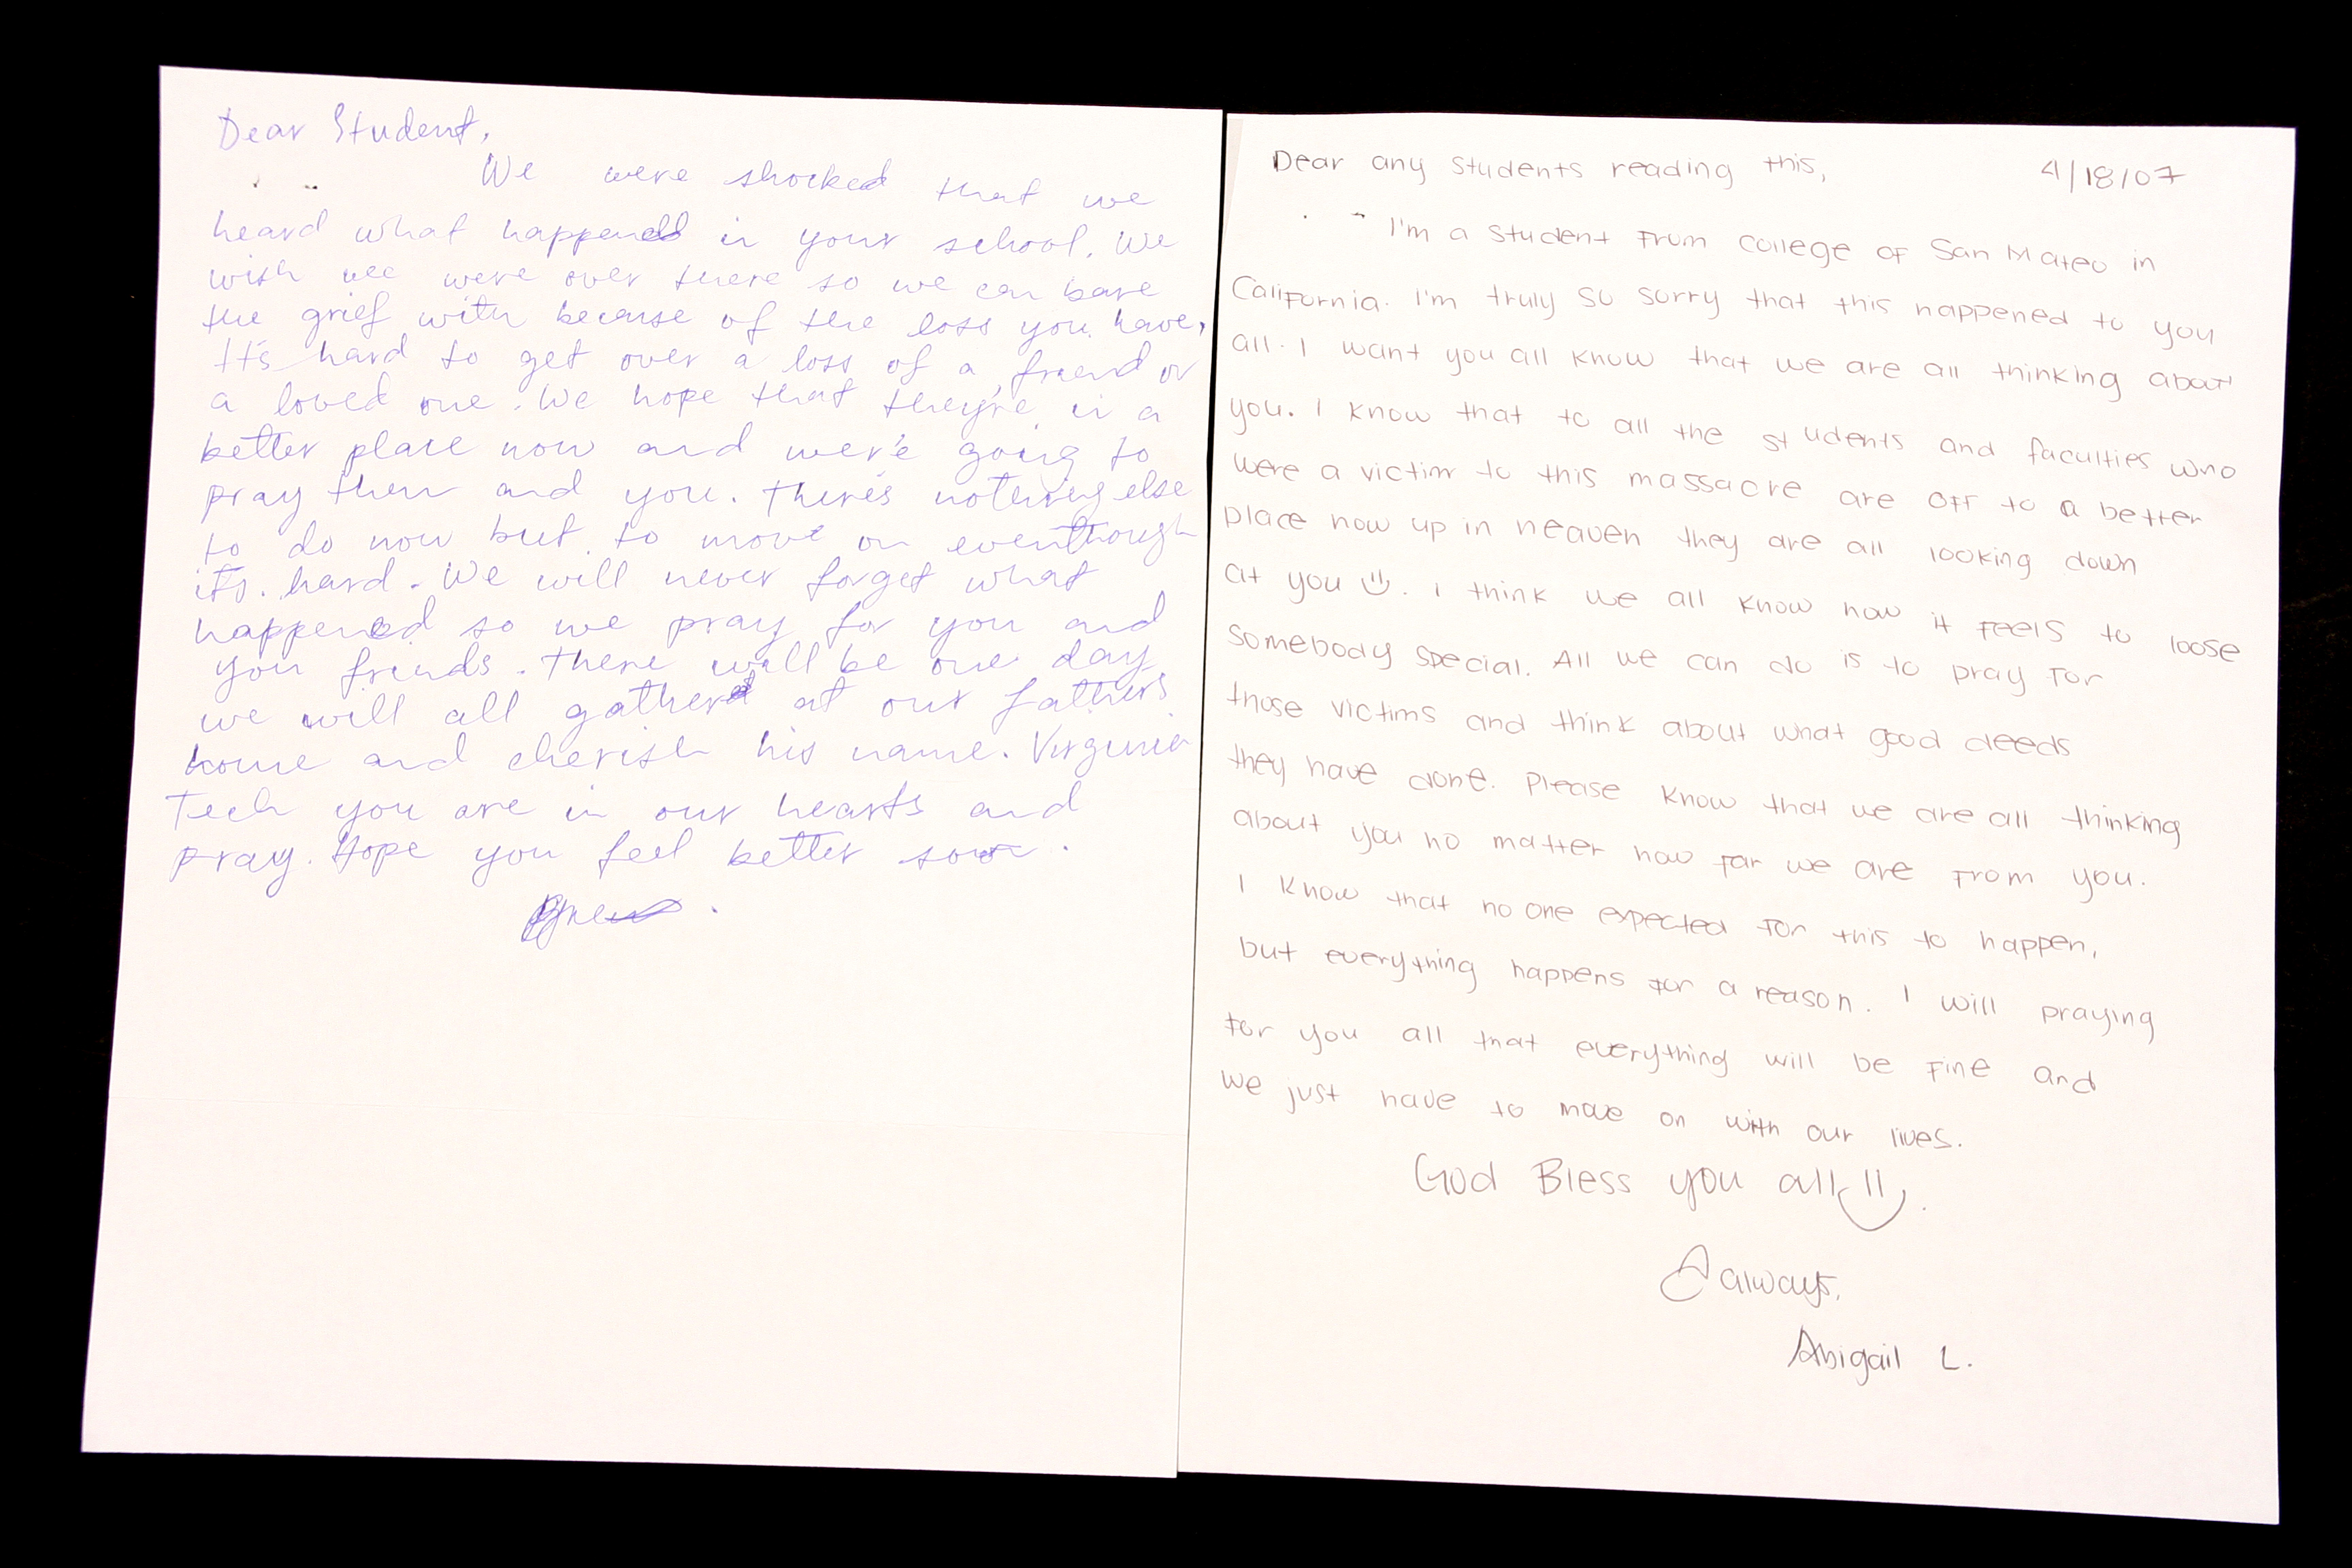 Dear Student,
We were shocked that we
heard what happened in your school. We
wish we were over there so we can bare
the grief with because of the loss you have,
It's hard to get over a loss of a friend or
a loved one. We hope that they're in a
better place now and we're going to
pray them and you. There's nothing else
to do now but to move on eventhough
it's hard. We will never forget what
happened so we pray for you and
you friends. There will be one day
we will all gather at our fathers
home and cherish his name. Virginia
Tech you are in our hearts and
pray. Hope you feel better soon.
Dear any students reading this, 4/18/07
I'm a student from College of San Mateo in
California. I'm truly so sorry that this happened to you
all. I want you all know that we are all thinking about
you. I know that to all the students and faculties who
were a victim to this massacre are off to a better
place now up in heaven they are all looking down
at you. I think we all know how it feels to loose
somebody special. All we can do is to pray for
those victims and think about what good deeds
they have done. Please know that we are all thinking
about you no matter how far we are from you.
I know that no one expected for this to happen,
but everything happens for a reason. I will praying
for you all that everything will be fine and
we just have to move on with our lives.
God Bless you all
always,
Abigail L.